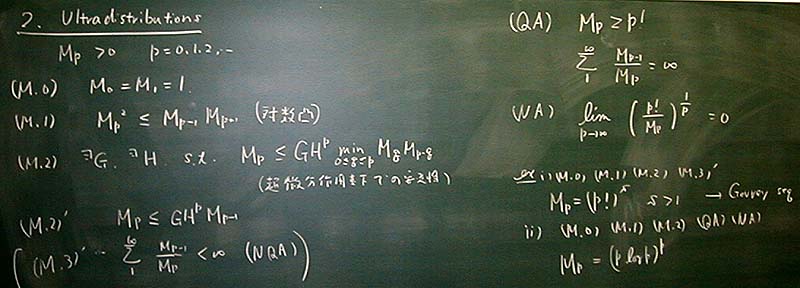 2. Ultradistributions
Mp > 0 p = 0, 1, 2, ...
(M.0) M₀ = M₁ = 1.
(M.1) Mp² ≤ Mp-1 Mp+1 (対数凸)
(M.2) ∃G, ∃H s.t. Mp ≤ GH^p min_{0≤q≤p} Mq Mp-q
(超微分作用素下での安定性)
(M.2)' Mp ≤ GH^p Mp-1
((M.3)' ∑_1^∞ Mp-1/Mp < ∞ (NQA))
(QA) Mp ≥ p!
∑_1^∞ Mp-1/Mp = ∞
(NA) lim_{p→∞} (p!/Mp)^{1/p} = 0
ex i) (M.0), (M.1) (M.2) (M.3)'
Mp = (p!)^s s > 1 → Gevrey seq
ii) (M.0) (M.1) (M.2) (QA) (NA)
Mp = (p log p)^p